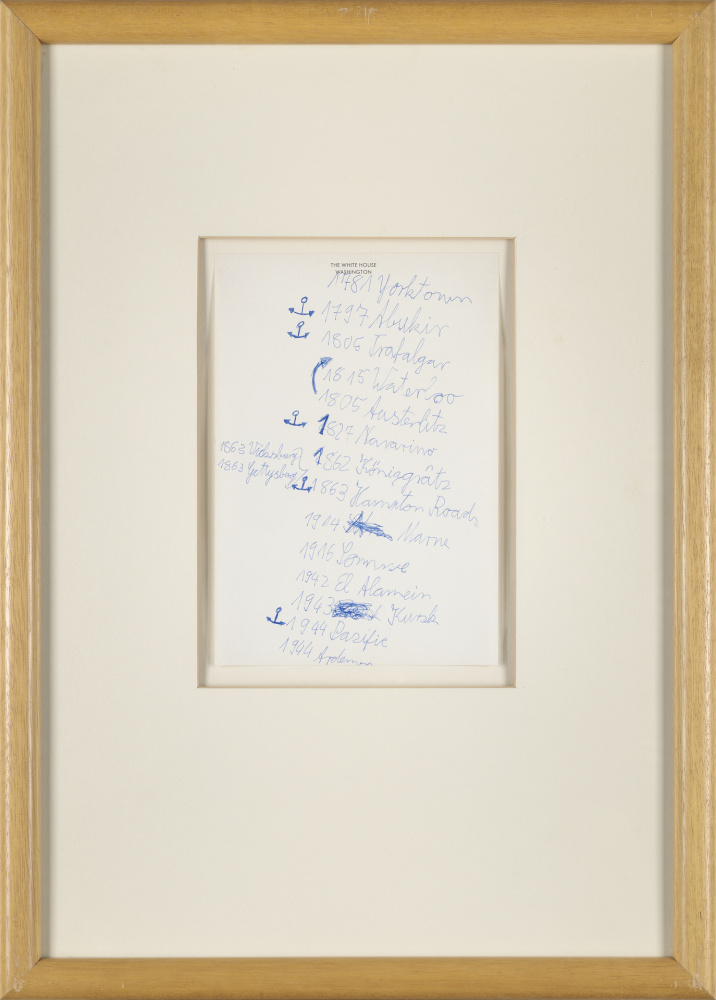 THE WHITE HOUSE
WASHINGTON
1781 Yorktown
1797 Abukir
1805 Trafalgar
1815 Waterloo
1805 Austerlitz
1827 Navarino
1863 Vicksburg
1863 Gettysburg
1862 Königgrätz
1863 Hampton Roads
1904 Marne
1916 Somme
1942 El Alamein
1943 Kursk
1944 Pazific
1944